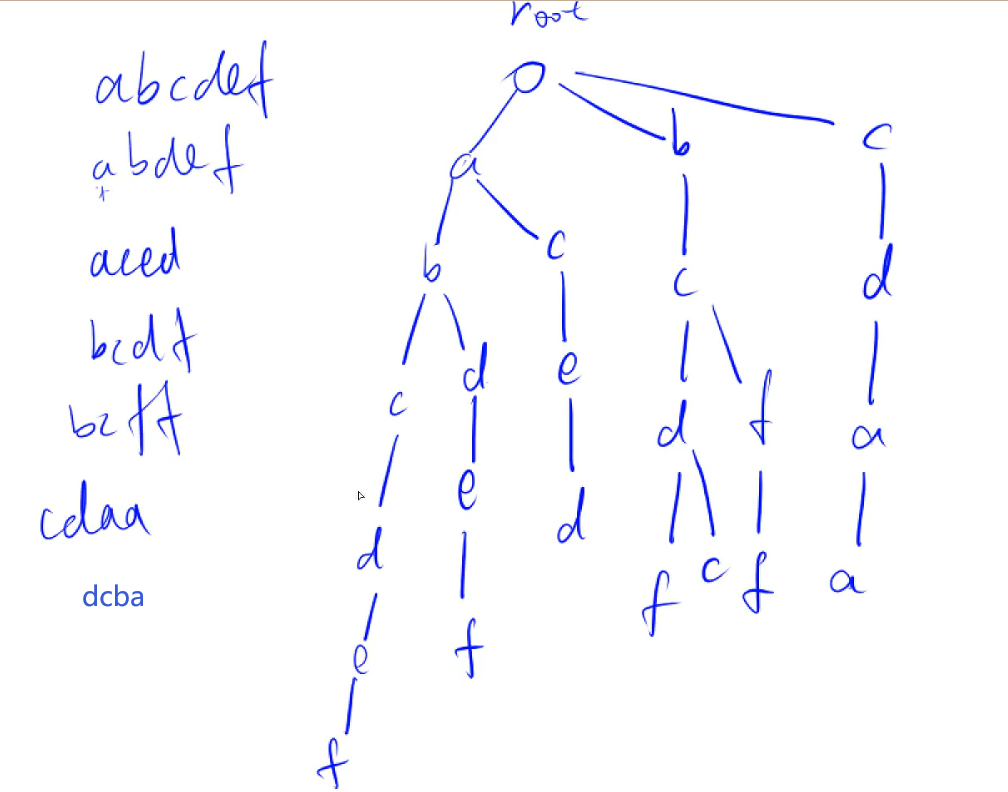 root
abcdef
abdef
aced
bcdf
bcff
cdaa
dcba
a b c
b c c d
c d e d f a
d e d f c f a
e f
f